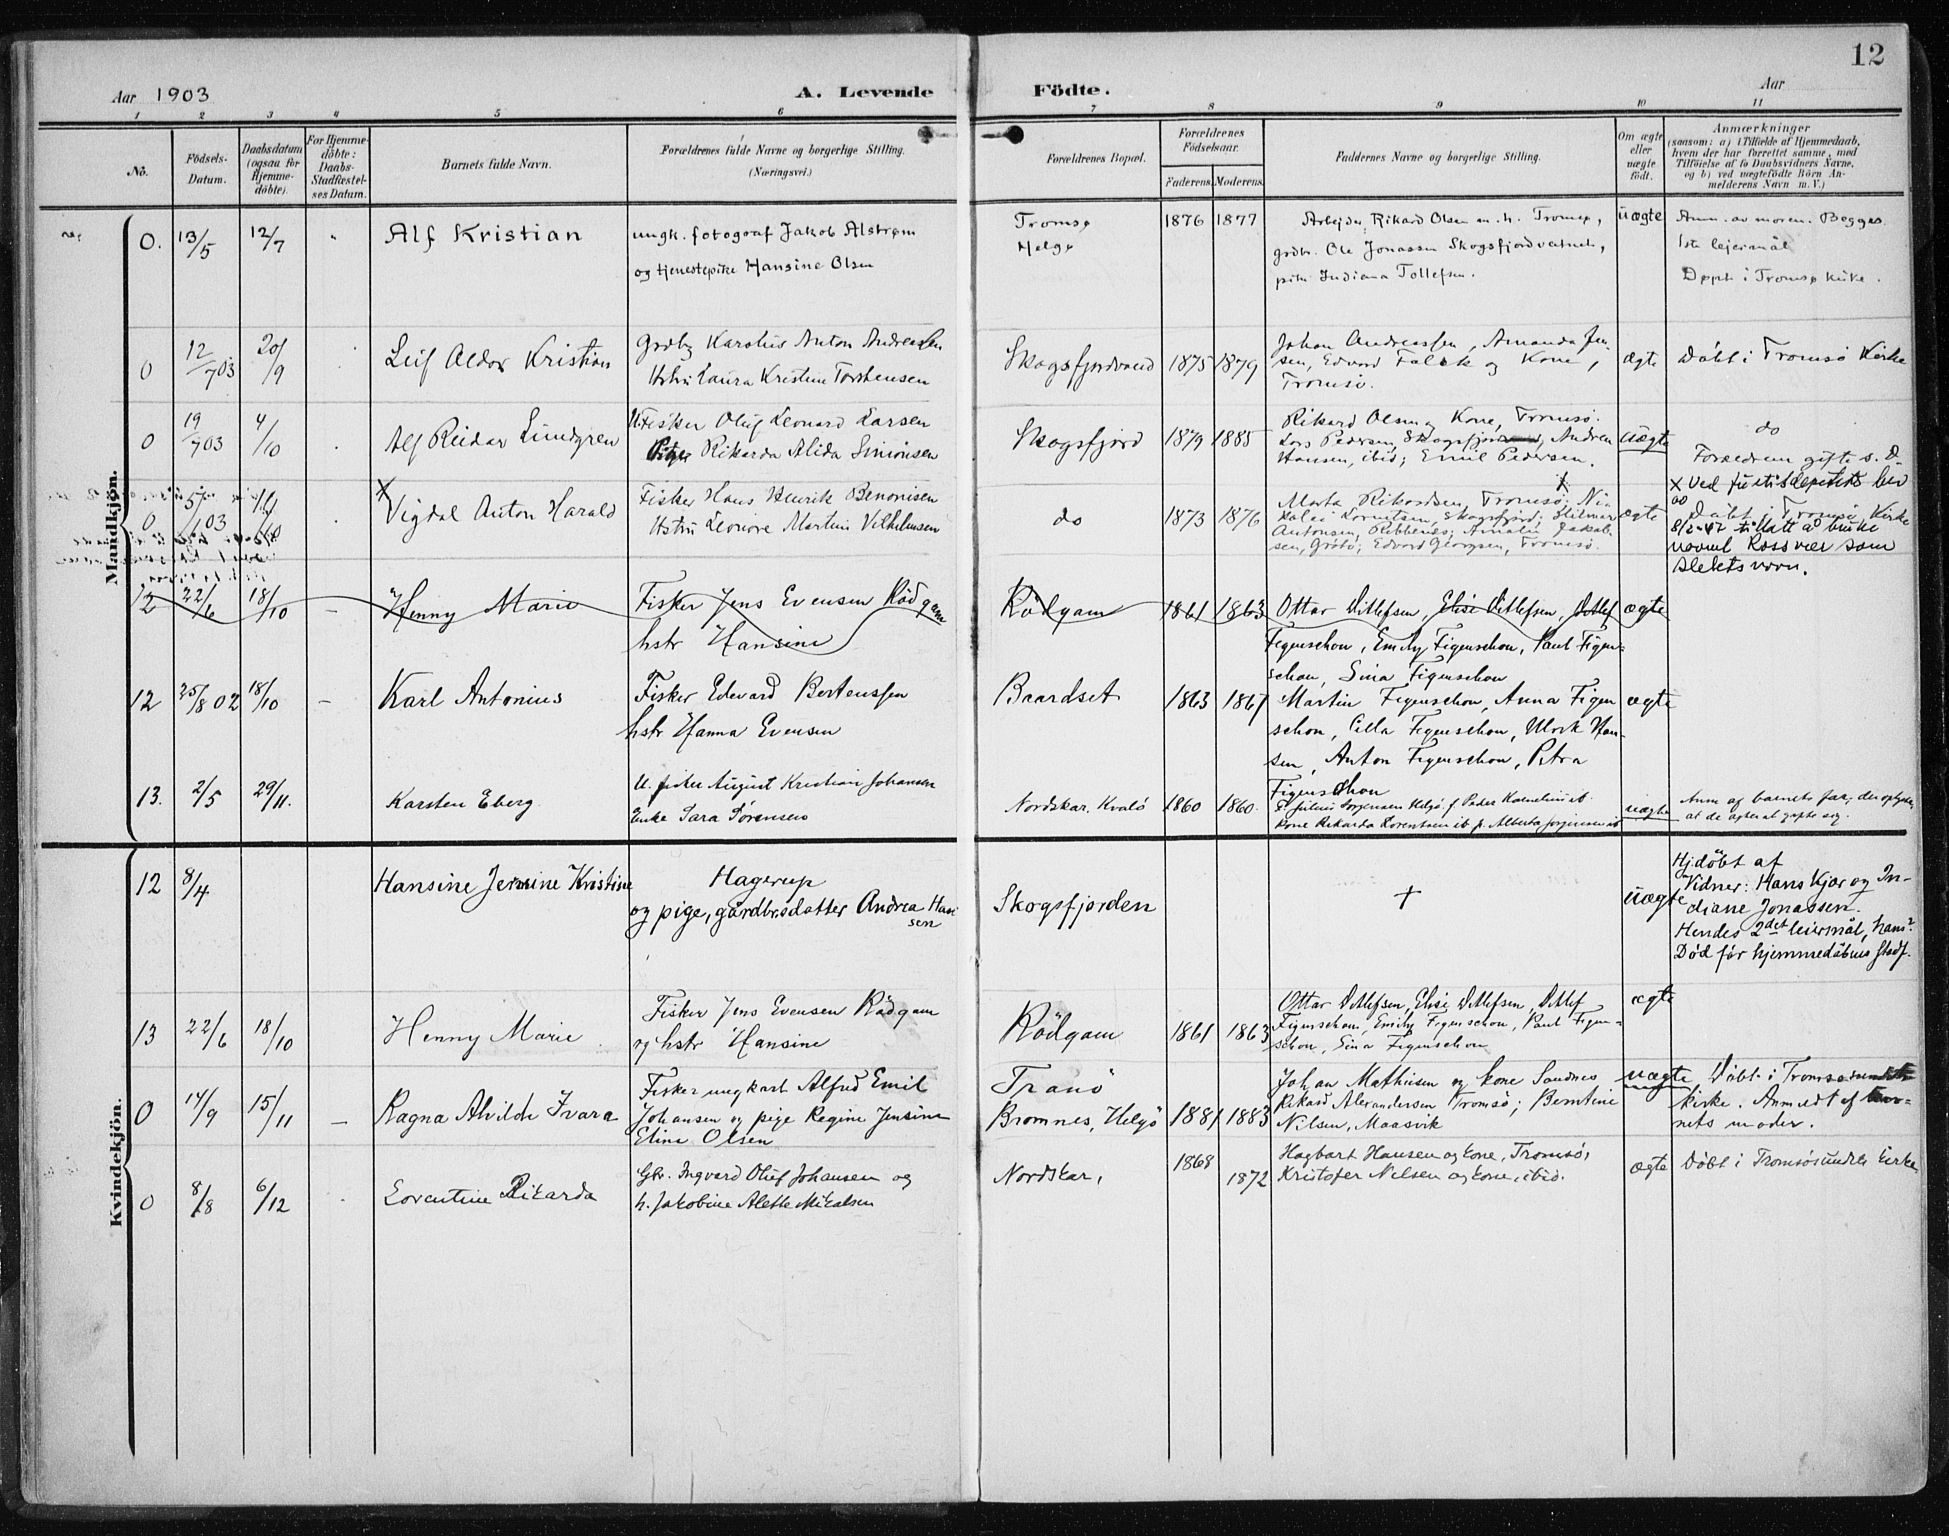 12
Aar 1903
A. Levende Födte.
Aar
1 2 3 4 5 6 7 8 9 10 11
No.
Födsels-Datum.
Daabsdatum (ogsaa for Hjemme-döbte).
For Hjemme-döbte: Daabs-Stadfæstel-ses Datum.
Barnets fulde Navn.
Forældrenes fulde Navne og borgerlige Stilling. (Næringsvei.)
Forældrenes Bopæl.
Forældrenes Födselsaar.
Faderens. Moderens.
Faddernes Navne og borgerlige Stilling.
Om ægte eller uægte födt.
Anmærkninger
(saasom: a) i Tilfælde af Hjemmedaab, hvem der har forrettet samme, med Tilföielse af to Daabsvidners Navne, og b) ved uægtefödte Börn An-melderens Navn m. V.)
Mandkjön.
0. 13/5 12/7 " Alf Kristian
ungk. fotograf Jakob Alstrøm
og tjenestepike Hansine Olsen
Tromsø
Helgø
1876 1877
Arbejder Rikard Olsen m. h. Tromsø,
grdbr. Ole Jonassen Skogsfjordvatnet,
pike Indiana Tollefsen.
uægte
Anm. av moren. Begges
1ste lejermål
Døpt i Tromsø kirke.
0 12/7 03 20/9 Leif Aldor Kristian
Grdbr Karolius Anton Andreassen
Hstru Laura Kristine Torstensen
Skogsfjordvand 1875 1879
Johan Andreassen, Amanda Jen-
sen, Edvard Falck og Kone,
Tromsö.
ægte Döbt i Tromsö Kirke
0 19/7 03 4/10 Alf Reidar Lundgren
U. Fisker Oluf Leonard Larsen
Pige Rikarda Alida Simonsen
Skogsfjord 1879 1885
Rikard Olsen og Kone, Tromsö.
Lars Pedersen, Skogsfjord, Andrea
Hansen, ibid; Emil Pedersen.
uægte do
Forældrene gifte s. D.
0 5/ 03 /10 × Vigdal Anton Harald
Fisker Hans Henrik Benonisen
Hstru Leonore Martine Vilhelmsen
do 1873 1876
Marta Rikardsen, Tromsö; Ni-
kolai Lorentsen, Skogsfjord; Hilmar
Antonsen, Ribbenes; Amalie Jakob-
sen, Grötö; Edvard Georgsen, Tromsö.
ægte
× Ved justisdepartets brev
Döbt i Tromsö Kirke
8/2-47 tillatt å bruke
navnet Rossvær som
slektsnavn.
12 22/6 18/10 – Henny Marie
Fisker Jens Evensen Rödgam
hstr Hansine
Rödgam 1861 1863
Ottar Ditlefsen, Elise Ditlefsen, Ditlef
Figenschou, Emily Figenschou, Paul Figen-
schou, Sina Figenschou
ægte
12 25/8 02 18/10 – Karl Antonius
Fisker Edvard Bertenssen
hstr Hanna Evensen
Baardset 1863 1867
Martin Figenschou, Anna Figen
schou, Cilla Figenschou, Ulrik Han-
sen, Anton Figenschou, Petra
Figenschou
ægte
13. 2/5 29/11. Karsten Eberg
U. fisker August Kristian Johansen
Enke Sara Sørensen
Nordskar. Kvalö 1860 1860.
F. Julius Jørgensen Helgö. f. Peder Kornelius ib.
kone Rikarda Lorentsen ib. p. Alberta Jørgensen ib
uægte
Anm af barnets far, der oplyser,
at de agter at gifte sig.
Kvindekjön.
12 8/4 Hansine Jensine Kristine
Hagerup
og pige, gårdbr.sdatter Andrea Han
sen
Skogsfjorden
+
uægte
Hjdöbt af
Vidner: Hans Kjær og In-
diane Jonassen.
Hendes 2det leiermål, hans?
Död för hjemmedåbens stadf.
13 22/6 18/10 Henny Marie
Fisker Jens Evensen Rödgam
og hstr Hansine
Rödgam 1861 1863
Ottar Ditlefsen, Elise Ditlefsen, Ditlef
Figenschou, Emily Figenschou, Paul Figen-
schou, Sina Figenschou
ægte
0 14/9 15/11 – Ragna Alvilde Ivara
Fisker ungkarl Alfred Emil
Johansen og pige Regine Jensine
Eline Olsen
Tranö
Bromnes, Helgö 1881 1883
Johan Mathisen og kone Sandnes
Rikard Alexandersen Tromsö; Berntine
Nilsen, Maasvik
uægte
Döbt i Tromsösundets
kirke. Anmeldt af bar-
nets moder.
0 8/8 6/12 Lorentine Rikarda
Gbr. Ingvard Oluf Johansen og
h. Jakobine Alette Mikalsen
Nordskar, 1868 1872
Hagbart Hansen og kone, Tromsö,
Kristofer Nilsen og kone, ibid.
ægte Döbt i Tromsösundets kirke